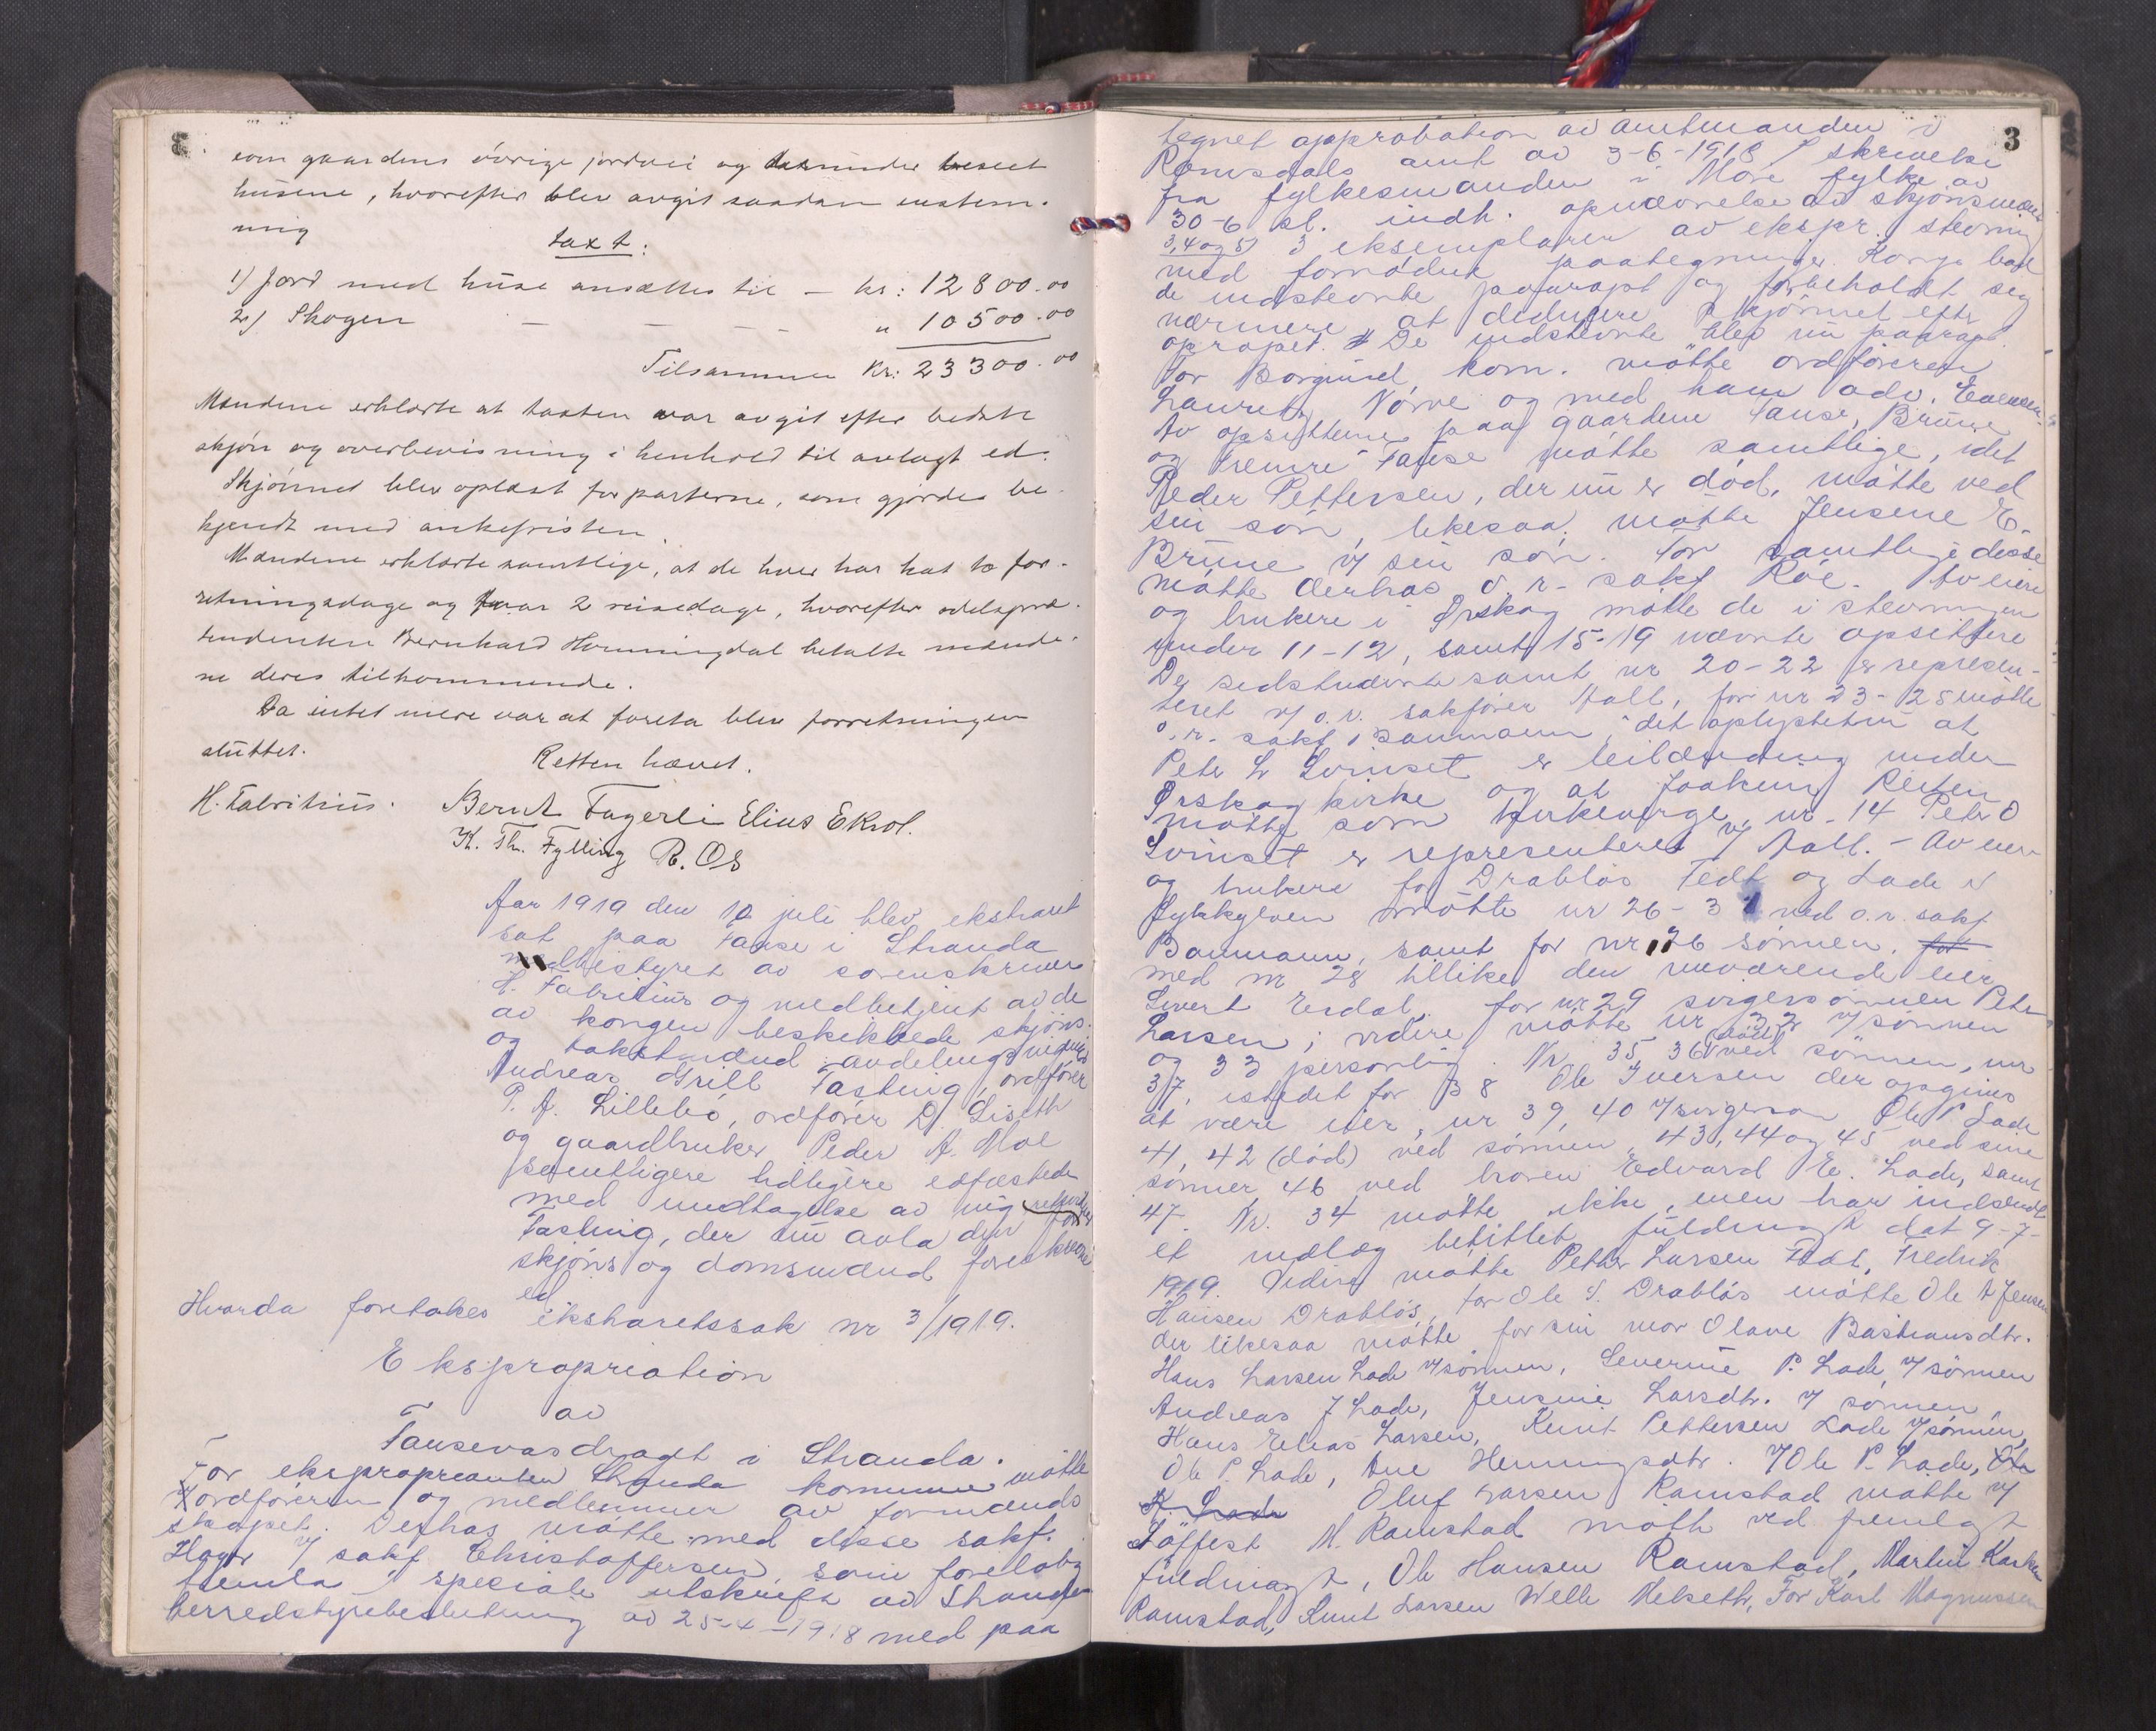 som gaardens övrige jordvei og derunder beseet
husene, hvorefter blev avgit saadan enstem-
mig
taxt:
1) Jord med huse ansættes til – kr: 12800.00
2) Skogen – – – – " 10500.00
Tilsammen kr: 23300.00
Mændene erklærte at taxten var avgit efter bedste
skjøn og overbevisning i henhold til avlagt ed.
Skjønnet blev oplæst for parterne, som gjordes be-
kjendt med ankefristen.
Mændene erklærte samtlige, at de hver har hat to for-
retningsdage og 2 reisedage, hvorefter odelspræ-
tendenten Bernhard Hommingdal betalte mænde-
ne deres tilkommende.
Da intet mere var at foreta blev forretningen
sluttet.
Retten hævet.
H. Fabritius. Bernt Fagerli Elius Ekrol.
K. Th. Fylling R. Os
Aar 1919 den 10 juli blev ekstraret
sat paa Fause i Stranda
bestyret av sorenskriver
H. Fabritius og medbetjent av de
av kongen beskikkede skjöns-
og takstmænd avdelings
Andreas Grill Fasting, ordförer
P. A. Lillebö, ordförer D. Liseth
og gaardbruker Peder A. Moe
samtligere tidligere edfæstede
med undtagelse av ing
Fasting, der nu avla den for
skjöns og domsmænd foreskrevne
ed
Hvorda foretakes ekstraretssak nr 3/1919.
Ekspropriation
av
Fausevasdraget i Stranda.
For eksproprianten Stranda kommune mötte
ordföreren og medlemmer av formænds
skapet. Derhos mötte med disse sakf.
Hagen v/ sakf Christoffersen, som forelöbig
fremla 1 speciale utskrift av Stranda
herredstyrebeslutning av 25-4-1918 med paa
3
tegnet approbation av amtmanden i
Romsdals amt av 3-6-1918 2 skrivelse
fra fylkesmanden i Möre fylke av
30-6 sl. indh. opnævnelse av skjönsmænd
3, 4 og 5) 3 eksemplarer av ekspr. stevning
med fornödne paategninger. Hagen bad
de indstevnte paaropt og forbeholdt seg
nærmere at deducere skjönnet efter
opropet. De indstevnte blev nu paaropt.
For Borgund kom. mötte ordföreren
Laurits Nörve og med ham adv.
Av opsitterne paa gaardene Fause, Brune
og Fremre Fause mötte samtlige, idet
Peder Pettersen, der nu er död, mötte ved
sin sön, likesaa mötte Jensine E.
Brune v/ sin sön. For samtlige disse
mötte derhos o. r. sakf Röe. Av eiere
og brukere i Ørskog mötte de i stevningen
under 11-12, samt 15-19 nævnte opsittere
De sidstnævnte samt nr 20-22 er represen-
teret v/ o. r. sakförer Aall, for nr 23-25 mötte
o. r. sakf Baumann, idet oplystes nu at
Peter L Svinset er leilænding under
Ørskog kirke og at Joakim Reiten
mötte som kirkeverge. nr. 14 Peter O
Svinset er representeret v/ Aall. – Av eiere
og brukere for Drablös Fedt og Lade i
Sykkylven mötte nr 26-31 ved o. r. sakf
Baumann, samt for nr 26 sönnen. for
med nr 28 tillike den nuværende eier
Sivert Erdal. for nr 29 svigersönnen Peter
Larsen; videre mötte nr 32 v/ sönnen
og 33 personlig. Nr 35, 36 (död) ved sönnen, nr
37, istedet for 38 Ole Iversen der opgives
at være eier, nr 39, 40 v/ svigerson Ole P. Lade
41, 42 (död) ved sönnen, 43, 44 og 45 ved sine
sönner, 46 ved broren Edvard E. Lade, samt
47. Nr. 34 mötte ikke, men har indsendt
et indlæg betitlet fuldmagt dat 9-7-
1919. Videre mötte Petter Larsen Fedt, Fredrik
Hansen Drablös, for Ole S. Drablös mötte Ole A Jensen
der likesaa mötte for sin mor Olave Bastiansdtr.
Hans Larsen Lade v/ sönnen, Severine P. Lade, v/ sönnen
Andreas J Lade, Jensine Larsdtr. v/ sönnen,
Hans Elias Larsen, Knut Pettersen Lade v/ sönnen,
Ole P. Lade, Ane Henningsdtr. v/ Ole P. Lade, Ole
K. Lade Oluf Larsen Ramstad mötte v/
M. Ramstad mötte ved fremlagt
fuldmagt, Ole Hansen Ramstad, Martin
Ramstad, Knut Larsen Welle Melseth, For Karl Magnussen